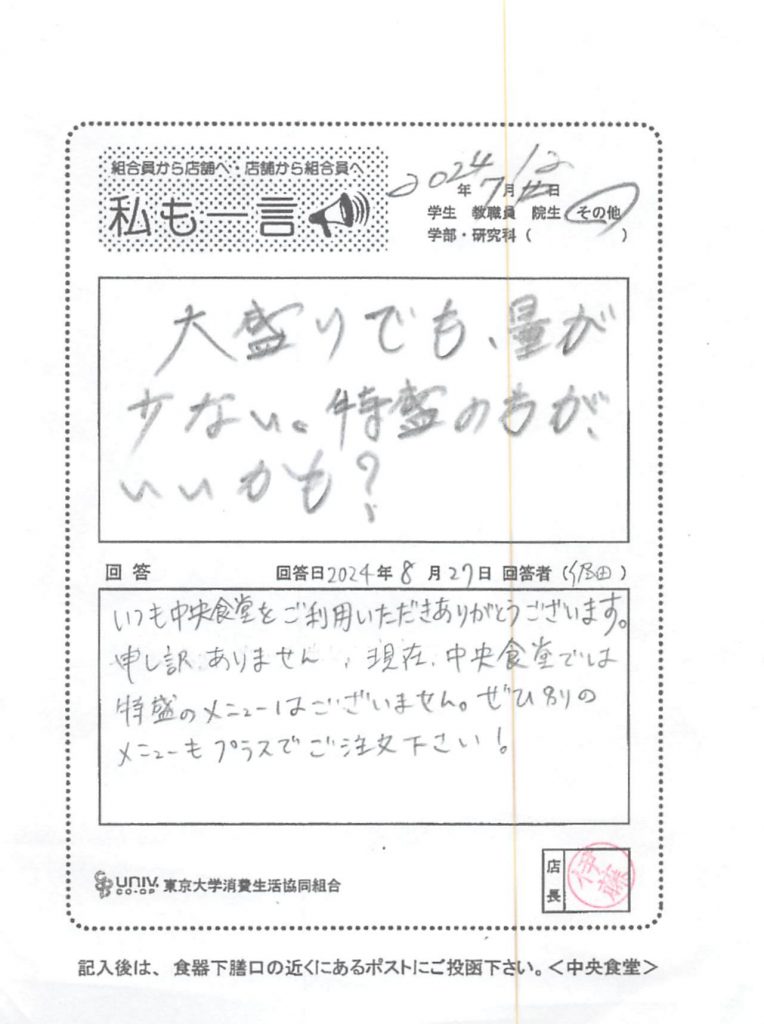 組合員から店舗へ・店舗から組合員へ
私も一言
2024年7月12日
学生 教職員 院生 その他
学部・研究科( )
大盛りでも、量が
少ない。特盛のもが、
いいかも?
回答 回答日2024年8月27日 回答者( 田)
いつも中央食堂をご利用いただきありがとうございます。
申し訳ありません、現在、中央食堂では
特盛のメニューはございません。ぜひ別の
メニューもプラスでご注文下さい!
UNIV. CO-OP 東京大学消費生活協同組合
店長
伊藤
記入後は、食器下膳口の近くにあるポストにご投函下さい。<中央食堂>